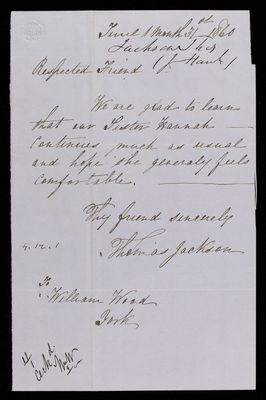 1 Month 31st 1860
Respected Friend
We are glad to learn
that our Sister Hannah
continues much as usual
and hope she generaly feels
comfortable.
Thy friend sincerely
Thomas Jackson
4.12.1
To
William Wood
York